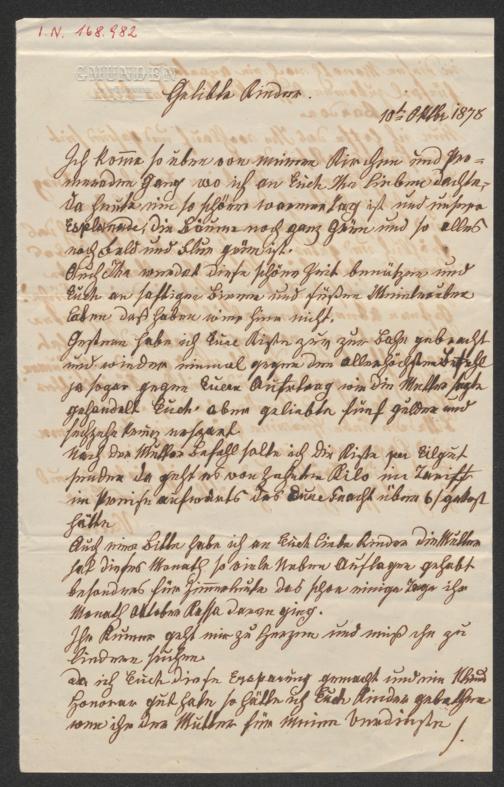 I.N. 168.982
GMUNDEN
Geliebte Kinder.
10th Oktbr 1878
Ich komme so eben von meinen Kirchen und Pro=
menaden Gang wo ich an Euch Ihr lieben dachte,
da heute ein so schöner warmer Tag ist und unsere
Esplanade, die Bäume noch ganz Grün und so alles
noch Feld und Flur grün ist.
Auch Ihr werdet diese schöne Zeit benützen und
Euch an saftigen Birnen und süßen Weintrauben
laben das haben wir hier nicht.
Gestern habe ich Eure Kiste zur Bahn gebracht
und wieder einmal gegen den allerhöchsten Befehl
ja sogar gegen Euren Auftrag wie die Mutter sagte
gehandelt Euch aber geliebte fünf Gulden und
sechzehn Kreuz erspart
Nach der Mutter Befehl sollte ich die Kiste per Eilgut
senden da geht es von zehnten Kilo im Tariff
im Preise aufwärts das Eure Fracht über 6 f gekost
hätte
Auch eine Bitte habe ich an Euch liebe Kinder die Mutter
hat dieses Monath so viele Neben Auslagen gehabt
besonders für Zimmerleute das schon einige Tage ihr
Monath Oktober Kassa darann ging.
Ihr Kummer geht mir zu Herzen und muß ihn zu
lindern suchen
Da ich Euch diese Ersparung gemacht und ein
Honorar gut habe so hätte ich Euch Kinder gebethen
wen ihr der Mutter für meine Verdienste